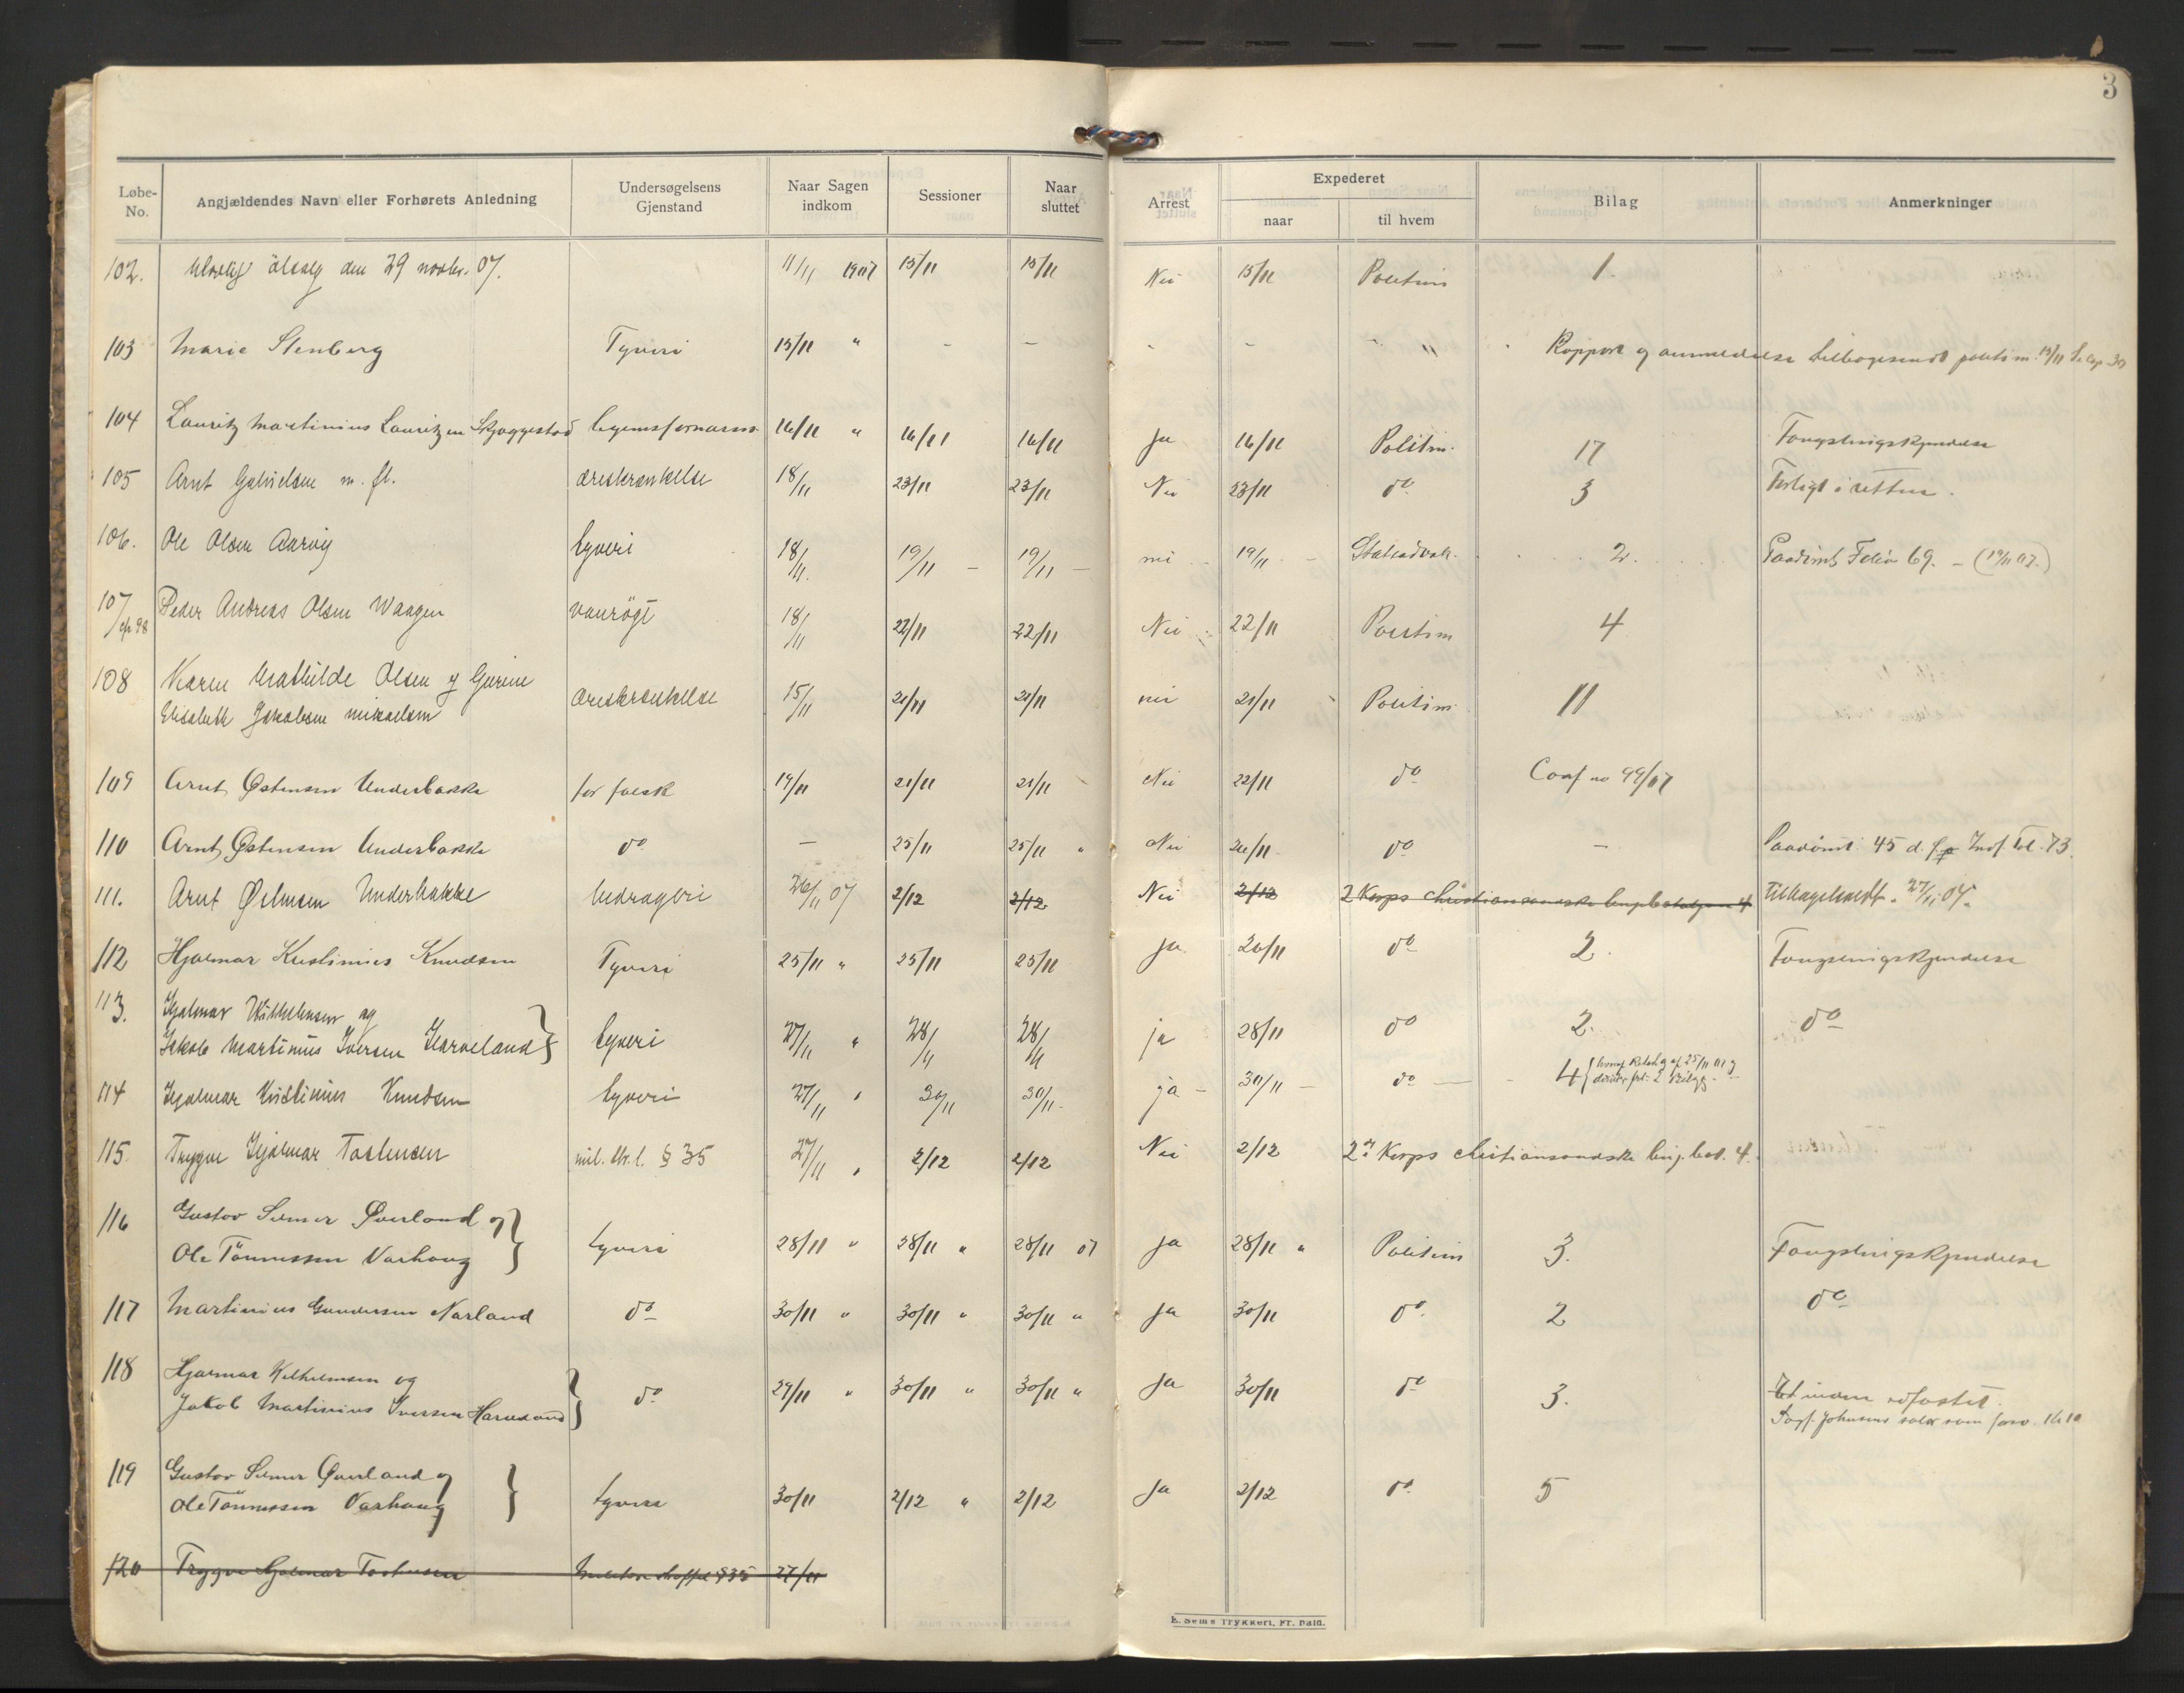 3
Løbe-No. Angjældendes Navn eller Forhørets Anledning Undersøgelsens Gjenstand Naar Sagen indkom Sessioner Naar sluttet Arrest Expederet naar til hvem Bilag Anmerkninger
102. ölsalg den 29 novbr. 07. 11/11 1907 15/11 15/11 Nei 15/11 Politim 1.
103 Marie Stenberg Tyveri 15/11 " - - - - " Rapport og anmeldelse tilbagesendt politim. 15/11
104 Lauritz Martinius Lauritzen Skjoggestad legemsfornærm 16/11 " 16/11 16/11 Ja 16/11 Politim. 17 Fængslingskjendelse
105 Arnt Gabrielsen m. fl. æreskrænkelse 18/11 23/11 23/11 Nei 23/11 do 3 Forligt i retten.
106. Ole Olsen Aarvig tyveri 18/11. 19/11 - 19/11 - nei 19/11 - Statsadvok. 2. Paadömt Folio 69. - (19/11 07.)
107/cfr 98 Peder Andreas Olsen Waagen vanrögt 18/11 22/11 22/11 Nei 22/11 Politim 4
108 Karen Mathilde Olsen og Gurine
Elisabeth Jakobsen Mikaelsen æreskrænkelse 15/11 21/11 21/11 nei 21/11 Politim. 11
109 Arnt Østensen Underbakke for falsk 19/11 21/11 21/11 Nei 22/11 do Conf no 99/07
110 Arnt Østensen Underbakke do - 25/11 25/11 " Nei 26/11 do - Paadömt 45 d. fgs Fol. 73.
111. Arnt Østensen Underbakke bedrageri 26/11 07 2/12 2/12 Nei 2/12 2 Korps Christiansandske 4 tilbagekaldt. 27/11 07.
112 Hjalmar Kristinius Knudsen Tyveri 25/11 " 25/11 25/11 Ja 26/11 do 2. Fængslingskjendelse
113. Hjalmar Wilhelmsen og
Jakob Martinius Iversen Harveland } tyveri 27/11 " 28/11 28/11 ja 28/11 do 2. do
114 Hjalmar Kristinius Knudsen tyveri 27/11 " 30/11 30/11 - ja - 30/11 - do - 4 {
115. Trygve Hjalmar Tostensen mil. str. l. § 35 27/11 " 2/12 2/12 Nei 2/12 2det Korps Christiansandske linj. bat. 4.
116 Gustav Sümer Øverland og
Ole Tönnessen Varhaug } tyveri 28/11 " 28/11 " 28/11 07 Ja 28/11 " Politim 3. Fængslingskjendelse
117 Martinius Gundersen Narland do 30/11 " 30/11 " 30/11 " Ja 30/11 do. 2 do
118 Hjalmar Wilhelmsen og
Jakob Martinius Iversen Harveland } do. 29/11 " 30/11 " 30/11 " Ja 30/11 do 3.
Sagf. Johnsens salær som forsv. Kr 10
119 Gustav Sümer Øverland og
Ole Tönnessen Varhaug } tyveri 30/11 2/12 " 2/12 Ja 2/12 do. 5
120 Trygve Hjalmar Tostensen § 35 27/11
E. Sems Trykkeri, Fr. hald.